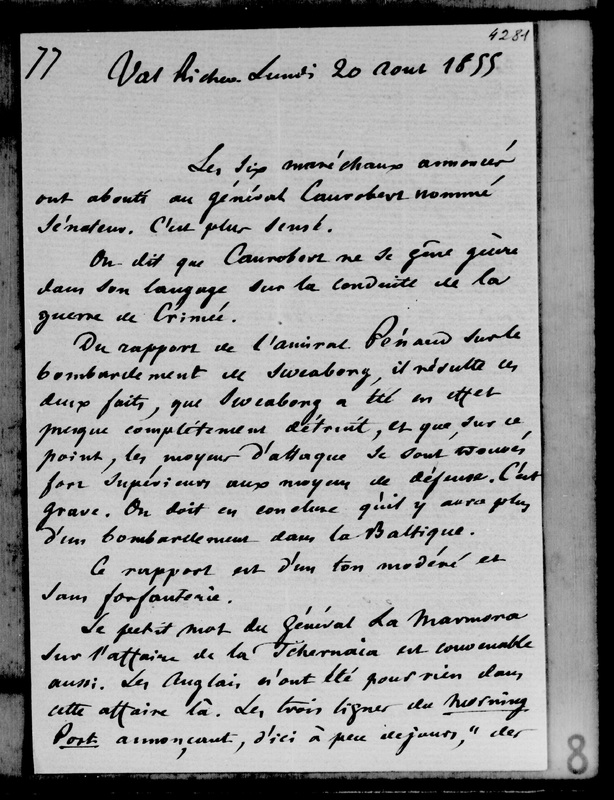 4281
77
Val Richer Lundi 20 aout 1855
Les six maréchaux annoncés
ont abouti au général Canrobert nommé
Sénateur. C'est plus sensé.
On dit que Canrobert ne se gêne guère
dans son langage sur la conduite de la
guerre de Crimée.
Du rapport de l'amiral Pénaud sur le
bombardement de Sweaborg, il résulte ces
deux faits, que Sweaborg a été en effet
presque complètement détruit, et que, sur ce
point, les moyens d'attaque se sont trouvés
fort supérieurs aux moyens de défense. C'est
grave. On doit en conclure qu'il y aura plus
d'un bombardement dans la Baltique.
Ce rapport est d'un ton modéré et
sans forfanterie.
Le petit mot du général La Marmora
sur l'affaire de la Tchernaïa est convenable
aussi. Les Anglais n'ont été pour rien dans
cette affaire là. Les trois lignes du Morning
Post annonçant, d'ici à peu de jours, "des
8